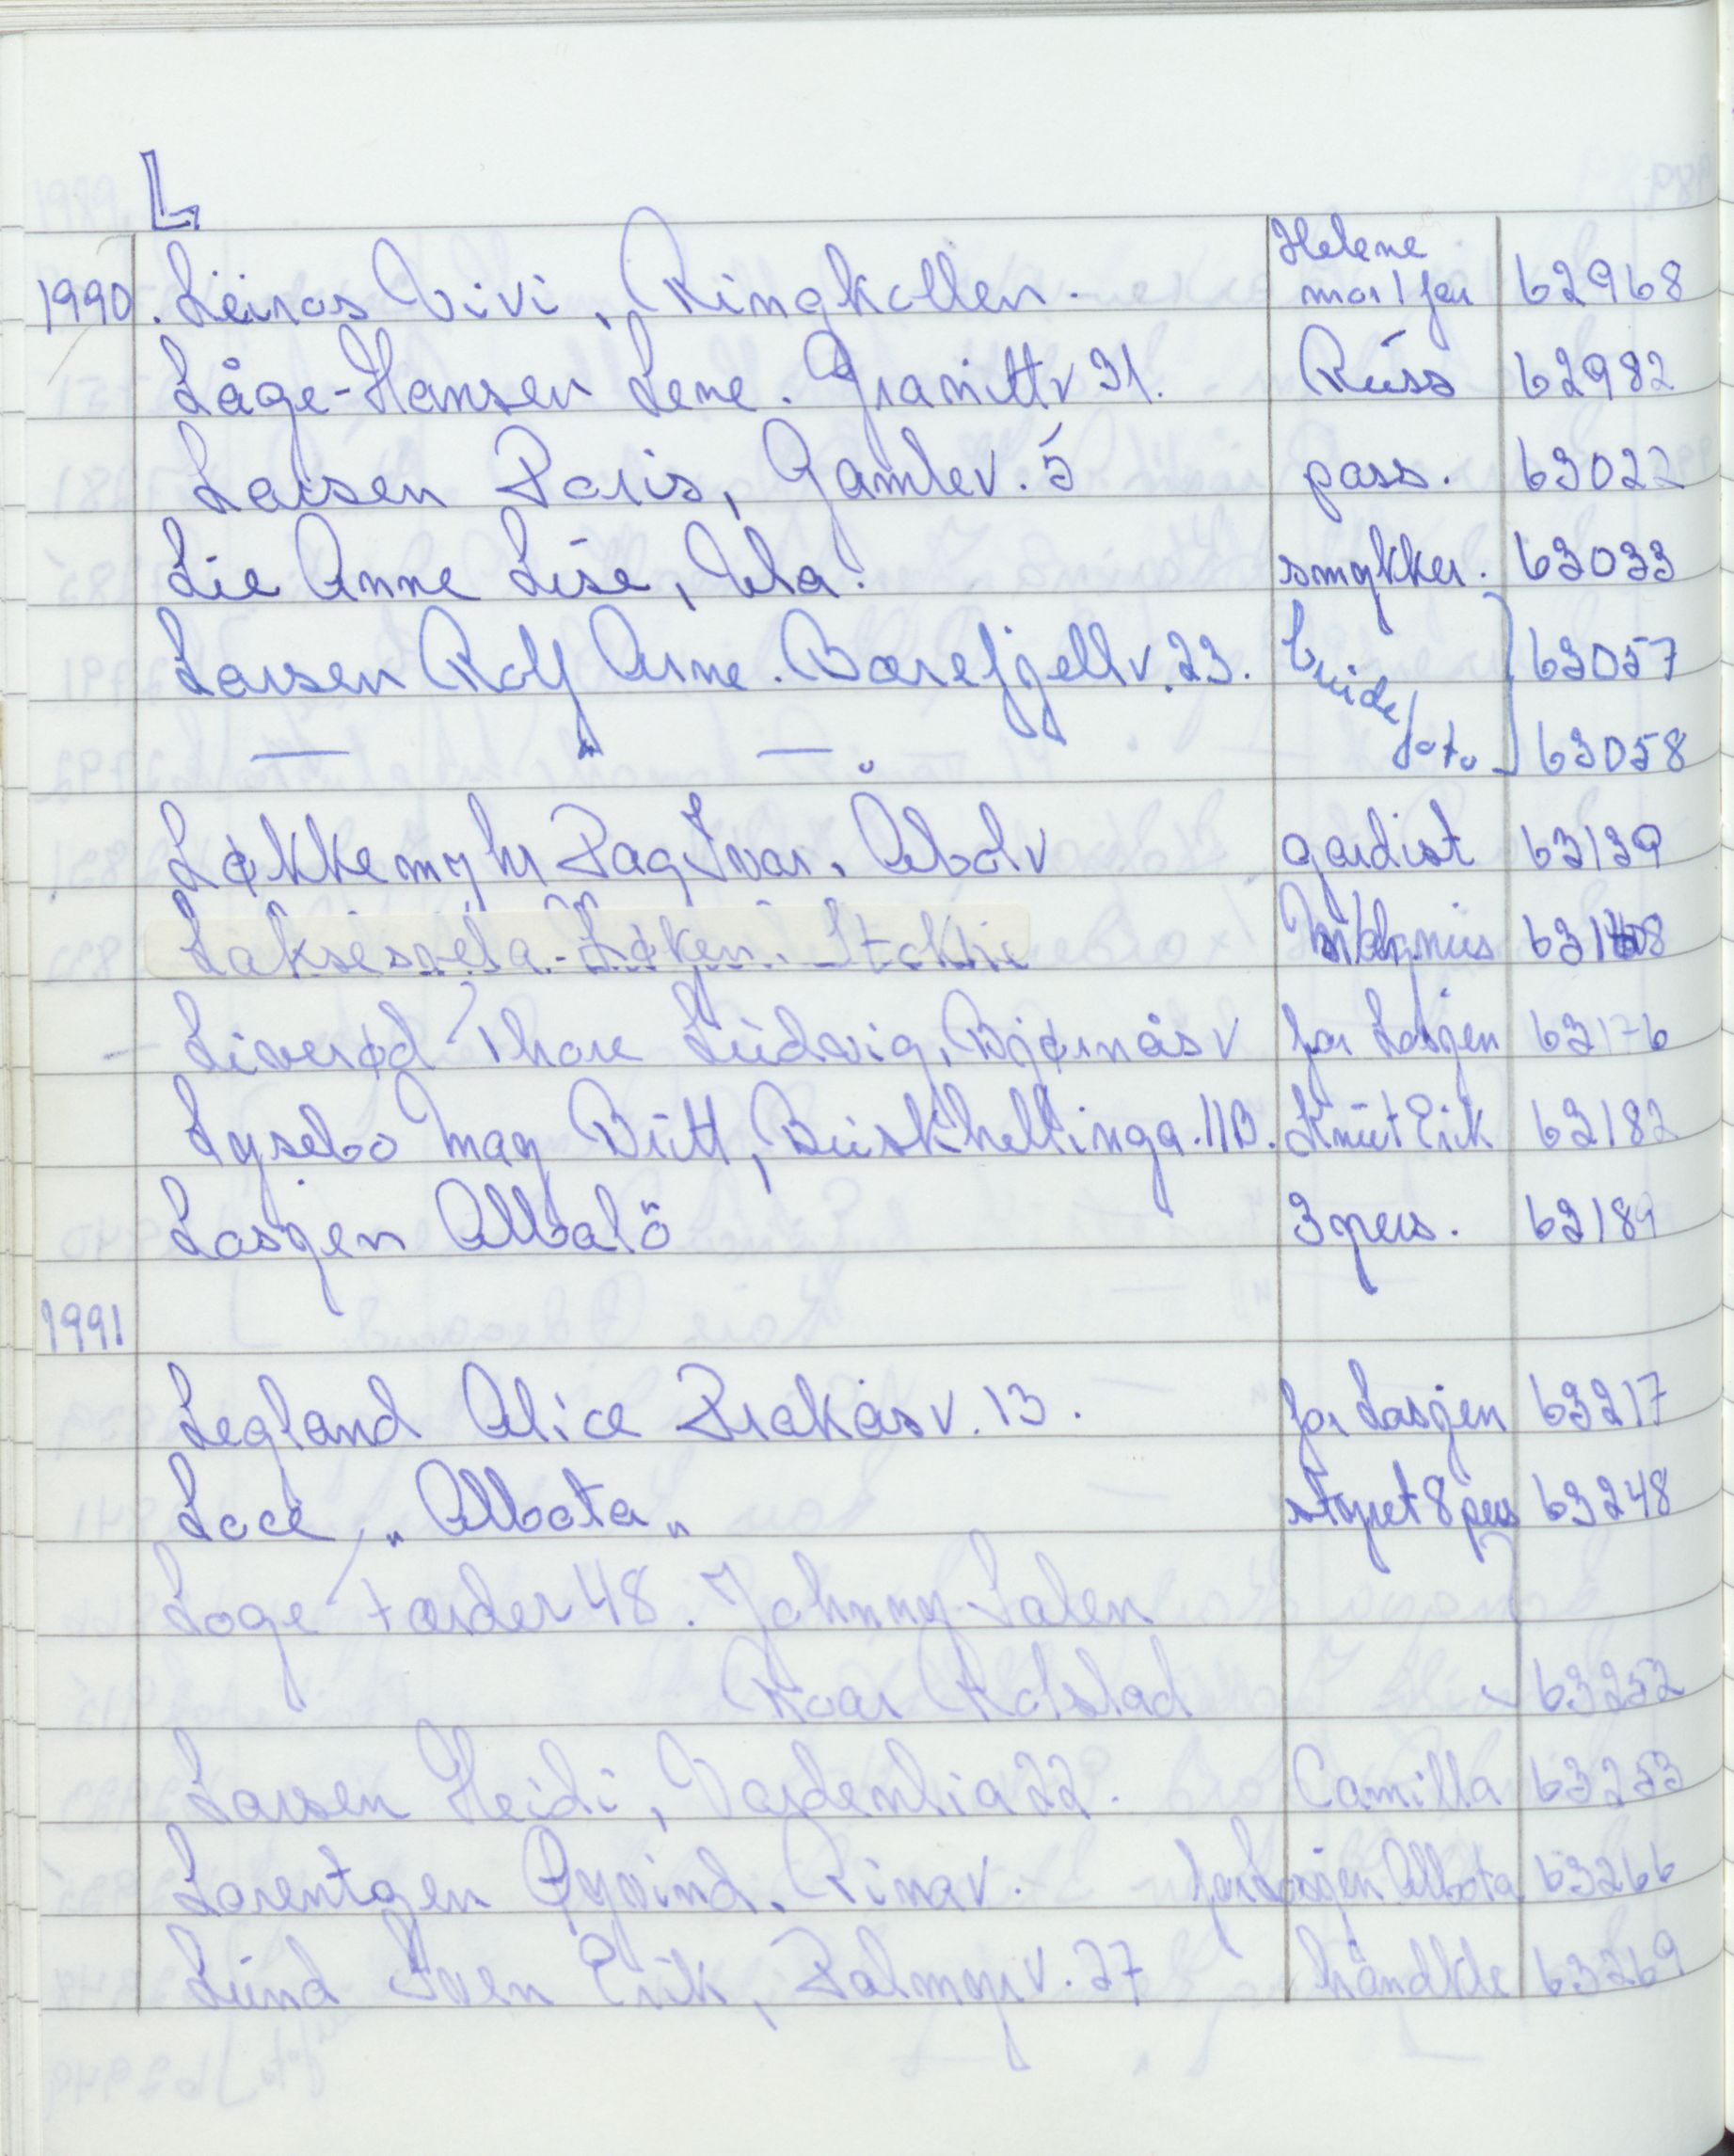 L
Helene
1990. Leiros Vivi, Ringkollen. mor/far 62968
Låge-Hansen Lene. Granittv 31. Russ 62982
Larsen Doris, Gamlev. 5 pass. 63022
Lie Anne Lise, Ula. smykker. 63033
Larsen Rolf Arne. Barefjellv. 23. bruide 63057
— " — foto 63058
Løkkemyhr Dag Ivar. Åbolv gardist 63139
Laksesvela-Løken. Magnus
Liverød Thore Ludvig, Bjørnåsv for Losjen 63176
Lysebo May Britt, Buskhellinga. 11B. Knut Erik 63182
Losjen Albatö 3 pers. 63189
1991
Legland Alice Drakåsv. 13. for Losjen 63217
Loce „Albata" styret 8 pers 63248
Loge Færder 48. Johnny Salen
Roar Rolstad 63252
Larsen Heidi, Vardenlia 22. Camilla 63253
Lorentzen Øyvind. Rinav. for Losjen Albata 63266
Lund Sven Erik, Dalmyrv. 27 håndkle 63269